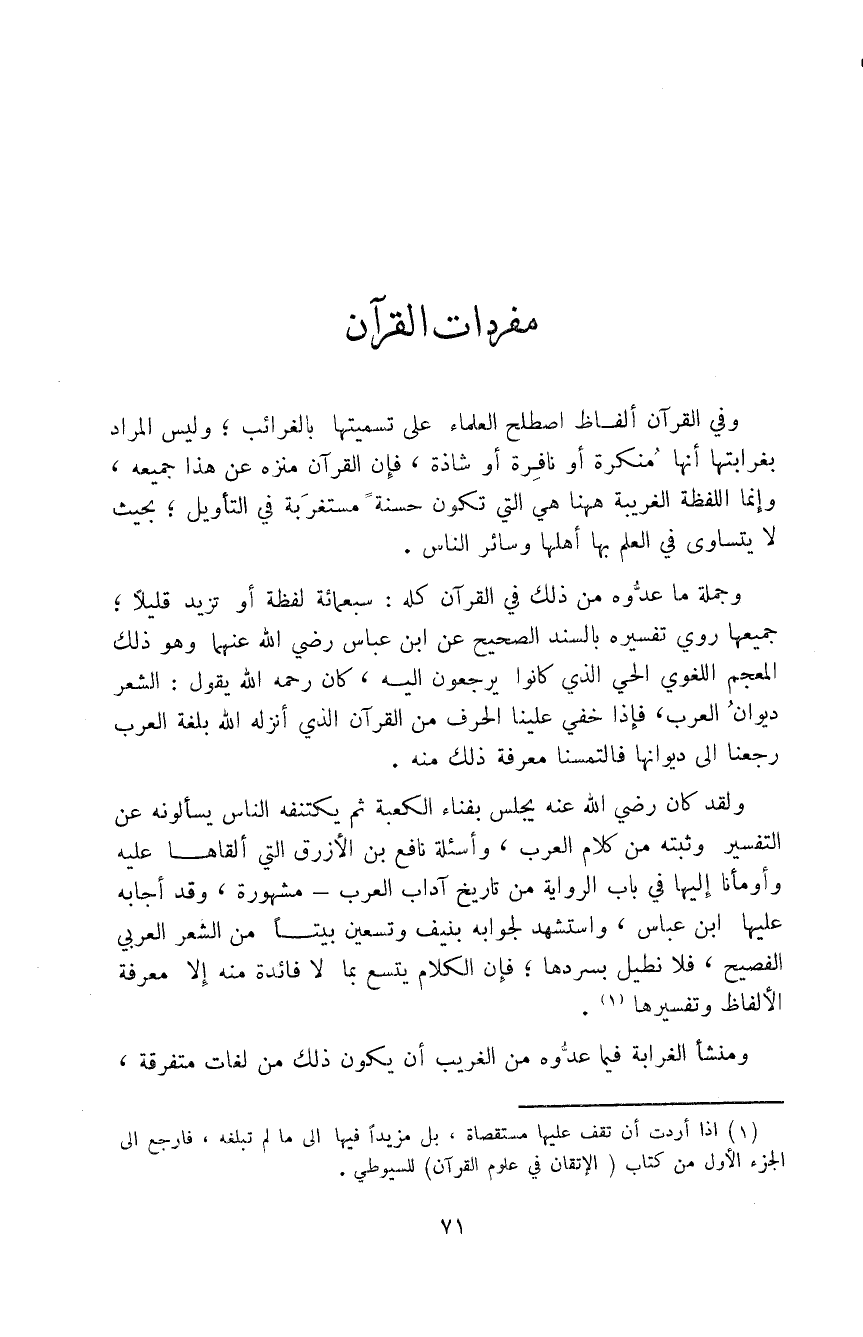 مفردات القرآن
وفي القرآن ألفـاظ اصطلح العلماء على تسميتها بالغرائب ؛ وليس المراد
بغرابتها أنها مُنكرة أو نافِرة أو شاذة ، فإن القرآن منزه عن هذا جميعه ،
وإنما اللفظة الغريبة ههنا هي التي تكون حسنةً مستغرَبة في التأويل ؛ بحيث
لا يتساوى في العلم بها أهلها وسائر الناس .
وجملة ما عدُّوه من ذلك في القرآن كله : سبعمائة لفظة أو تزيد قليلاً ؛
جميعها روي تفسيره بالسند الصحيح عن ابن عباس رضي الله عنهما وهو ذلك
المعجم اللغوي الحي الذي كانوا يرجعون اليـه ، كان رحمه الله يقول : الشعر
ديوانُ العرب، فإذا خفي علينا الحرف من القرآن الذي أنزله الله بلغة العرب
رجعنا الى ديوانها فالتمسنا معرفة ذلك منه .
ولقد كان رضي الله عنه يجلس بفناء الكعبة ثم يكتنفه الناس يسألونه عن
التفسير وثبته من كلام العرب ، وأسئلة نافع بن الأزرق التي ألقاهـا عليه
وأومأنا إليها في باب الرواية من تاريخ آداب العرب – مشهورة ، وقد أجابه
عليها ابن عباس ، واستشهد لجوابه بنيف وتسعين بيتـاً من الشعر العربي
الفصيح ، فلا نطيل بسردها ؛ فإن الكلام يتسع بما لا فائدة منه إلا معرفة
الألفاظ وتفسيرها (١) .
ومنشأ الغرابة فيما عدُّوه من الغريب أن يكون ذلك من لغات متفرقة ،
(١) اذا أردت أن تقف عليها مستقصاة ، بل مزيداً فيها الى ما لم تبلغه ، فارجع الى
الجزء الأول من كتاب ( الإتقان في علوم القرآن) للسيوطي .
٧١